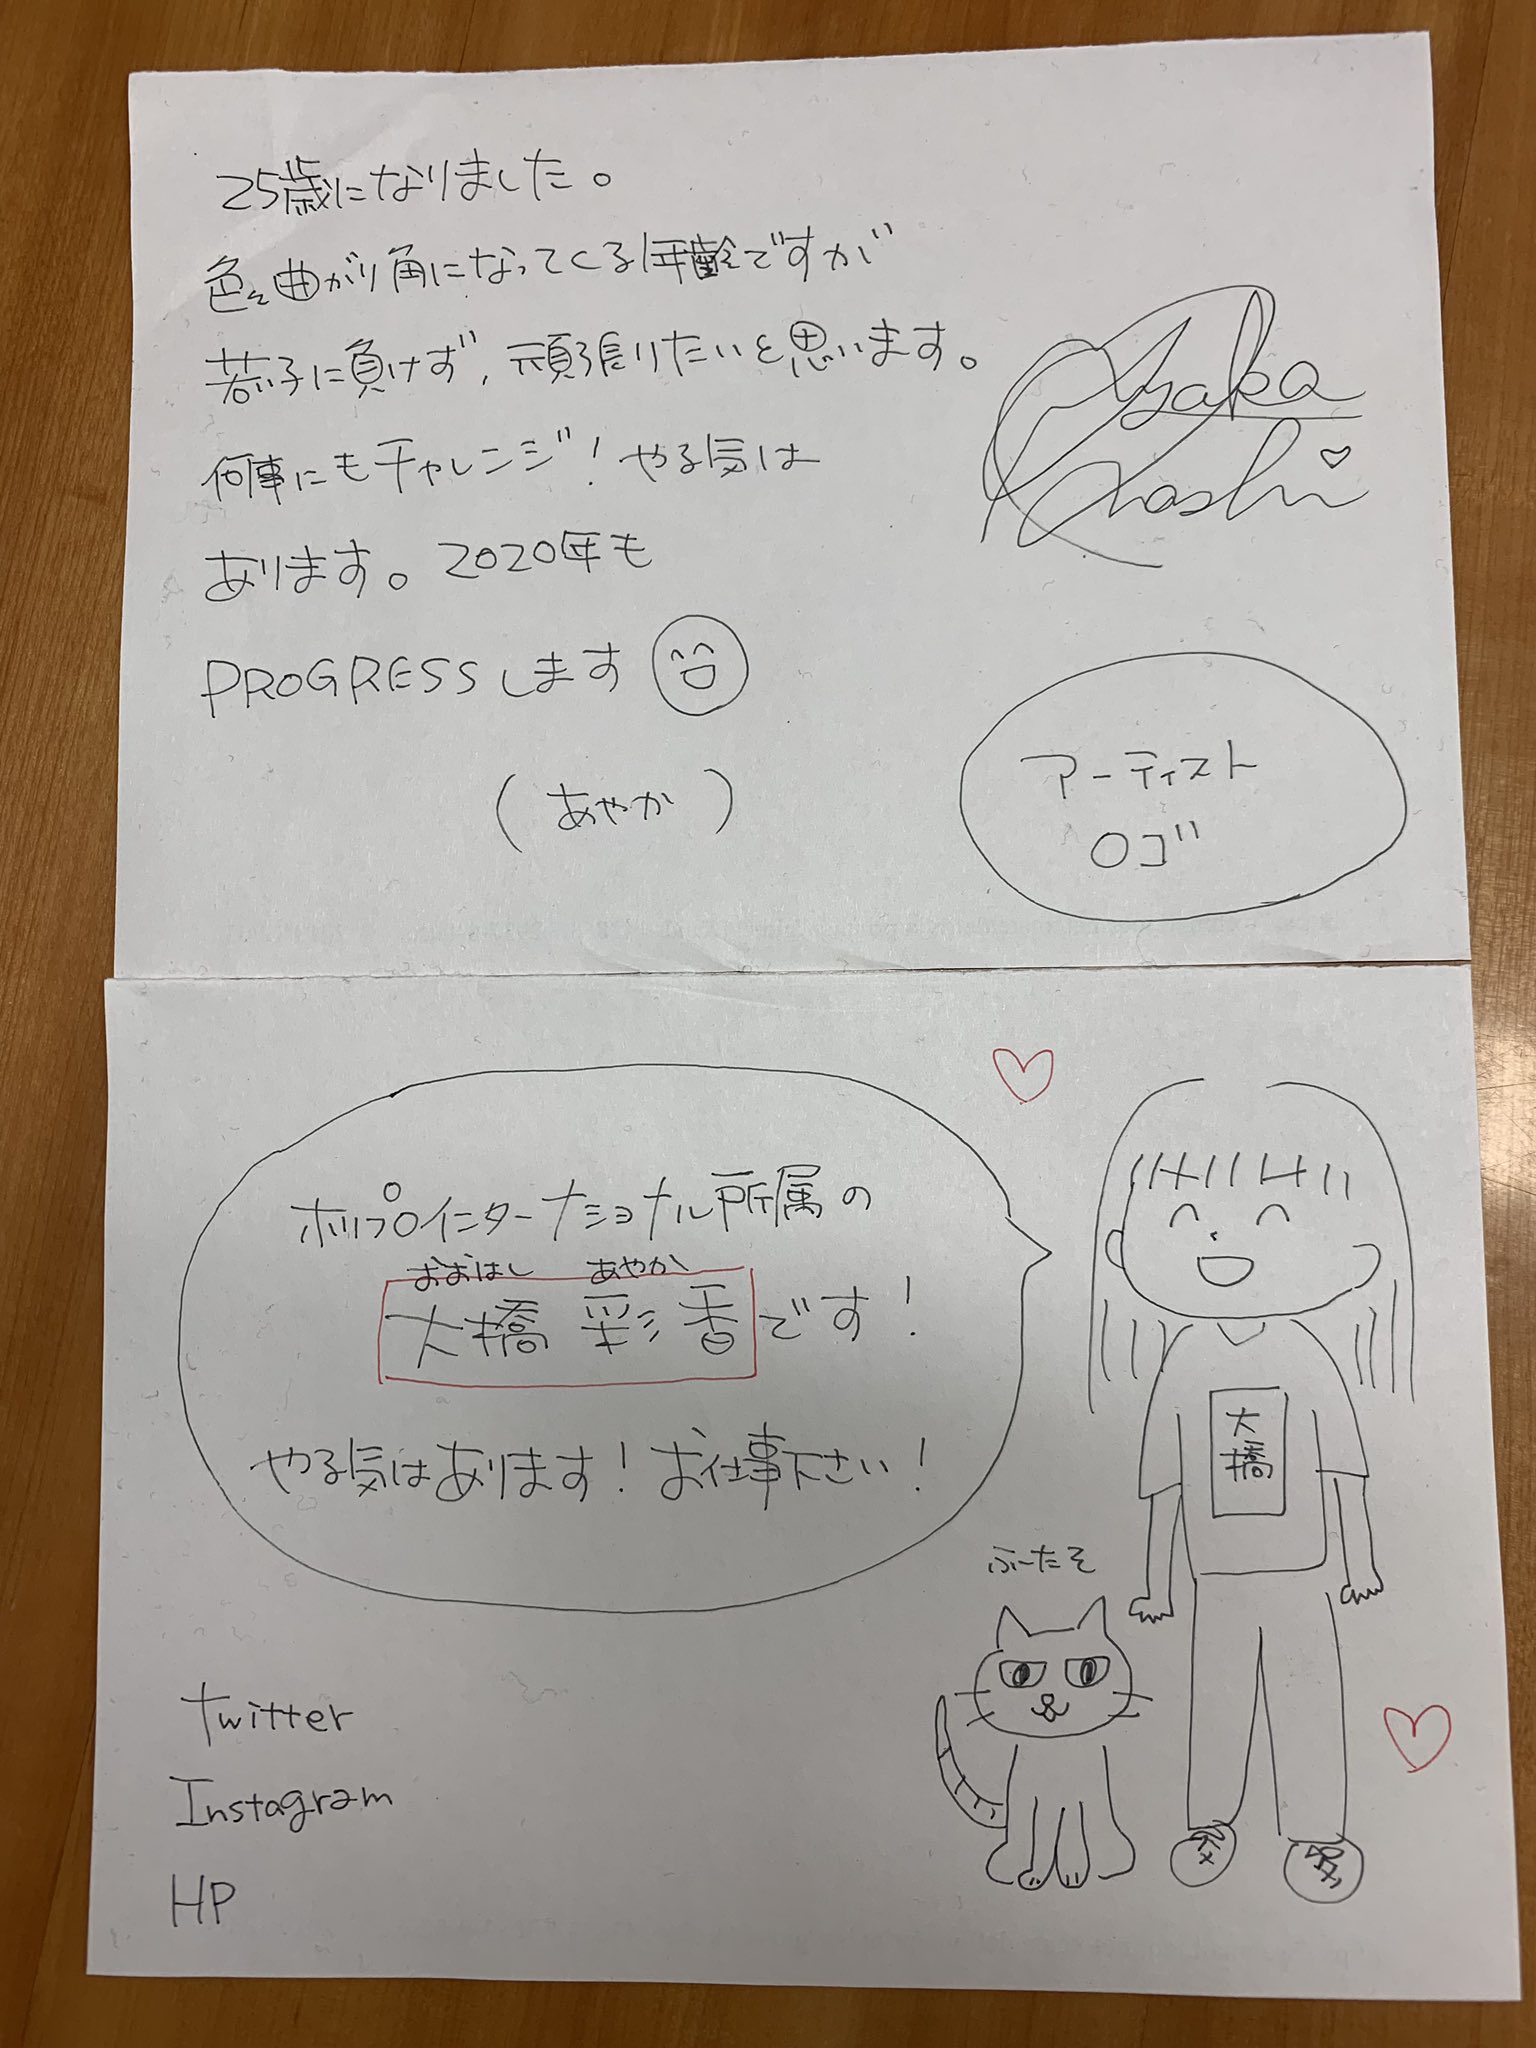 25歳になりました。
色々曲がり角になってくる年齢ですが
若い子に負けず、頑張りたいと思います。
何事にもチャレンジ！やる気は
あります。2020年も
PROGRESSします
（あやか）
Ayaka
Ohashi
アーティスト
ロゴ
ホリプロインターナショナル所属の
おおはし あやか
大橋 彩香です！
やる気はあります！お仕事下さい！
大橋
ふーたそ
Twitter
Instagram
HP